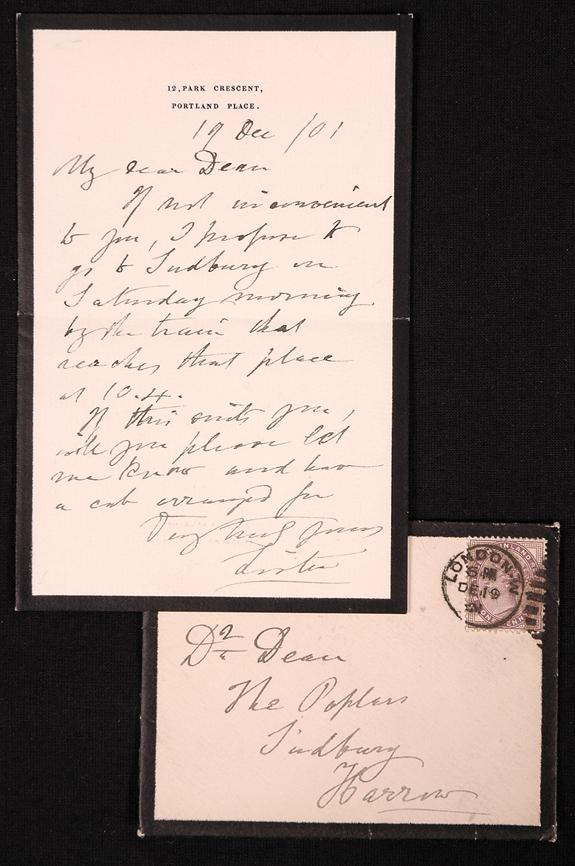 12, PARK CRESCENT,
PORTLAND PLACE.
19 Dec /01
My dear Dean
If not inconvenient
to you, I propose to
go to Sudbury on
Saturday morning
by the train that
reaches that place
at 10.4.
If this suits you,
will you please let
me know and have
a cab arranged for
Very truly yours
Lister
LONDON. W
DE 19
01
Dr Dean
The Poplars
Sudbury
Harrow